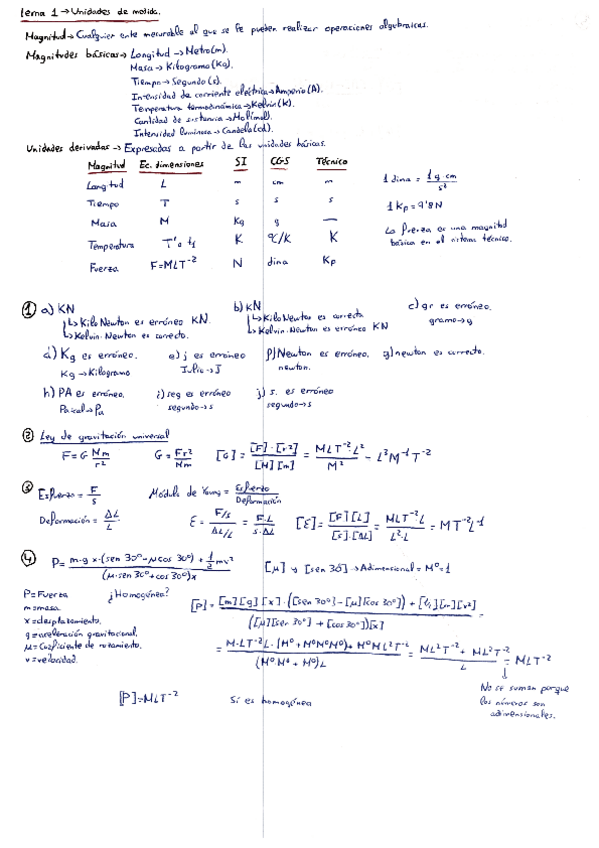 Tema 1 → Unidades de medida.
Magnitud → Cualquier ente mesurable al que se le pueden realizar operaciones algebraicas.
Magnitudes básicas → Longitud → Metro (m).
Masa → Kilogramo (Kg).
Tiempo → Segundo (s).
Intensidad de corriente eléctrica → Amperio (A).
Temperatura termodinámica → Kelvin (K).
Cantidad de sustancia → Mol (mol).
Intensidad luminosa → Candela (cd).
Unidades derivadas → Expresadas a partir de las unidades básicas.
Magnitud Ec. dimensiones SI CGS Técnico
Longitud L m cm m
Tiempo T s s s
Masa M Kg g —
Temperatura T' o t₁ K ºC/K K
Fuerza F=MLT⁻² N dina Kp
1 dina = 1g·cm / s²
1 Kp = 9'8 N
La fuerza es una magnitud
básica en el sistema técnico.
① a) KN b) KN c) gr es erróneo.
↳ Kilo Newton es erróneo KN. ↳ Kilo Newton es correcto. gramo → g
↳ Kelvin·Newton es correcto. ↳ Kelvin·Newton es erróneo KN
d) Kg es erróneo. e) j es erróneo f) Newton es erróneo. g) newton es correcto.
Kg → Kilogramo Julio → J newton.
h) PA es erróneo. i) seg es erróneo j) s. es erróneo
Pascal → Pa segundo → s segundo → s
② Ley de gravitación universal
F = G Nm / r² G = Fr² / Nm [G] = [F]·[r²] / [N][m] = MLT⁻²·L² / M² = L³M⁻¹T⁻²
③ Esfuerzo = F / s Módulo de Young = Esfuerzo / Deformación
Deformación = ΔL / L E = F/s / ΔL/L = F·L / s·ΔL [E] = [F][L] / [s]·[ΔL] = MLT⁻²·L / L²·L = MT⁻²L⁻¹
④ P = m·g x·(sen 30º - μ cos 30º) + ½ mv² / (μ·sen 30º + cos 30º)x [μ] y [sen 30] → Adimensional = M⁰ = 1
P = Fuerza ¿Homogénea?
m = masa
x = desplazamiento.
g = aceleración gravitacional.
μ = Coeficiente de rozamiento.
v = velocidad.
[P] = [m][g][x]·([sen 30º] - [μ][cos 30º]) + [½][m][v²] / ([μ][sen 30º] + [cos 30º])[x] =
= M·LT⁻²L·(M⁰ + M⁰M⁰M⁰) + M⁰ML²T⁻² / (M⁰M⁰ + M⁰)L = ML²T⁻² + ML²T⁻² / L = MLT⁻²
No se suman porque
los números son
adimensionales.
[P] = MLT⁻² Sí es homogénea